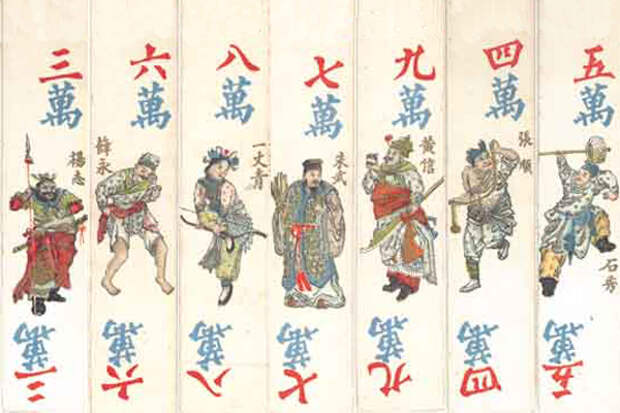 三萬
楊志
三萬
六萬
薛永
六萬
八萬
一丈青
八萬
七萬
朱武
七萬
九萬
黄信
九萬
四萬
張順
四萬
五萬
石秀
五萬